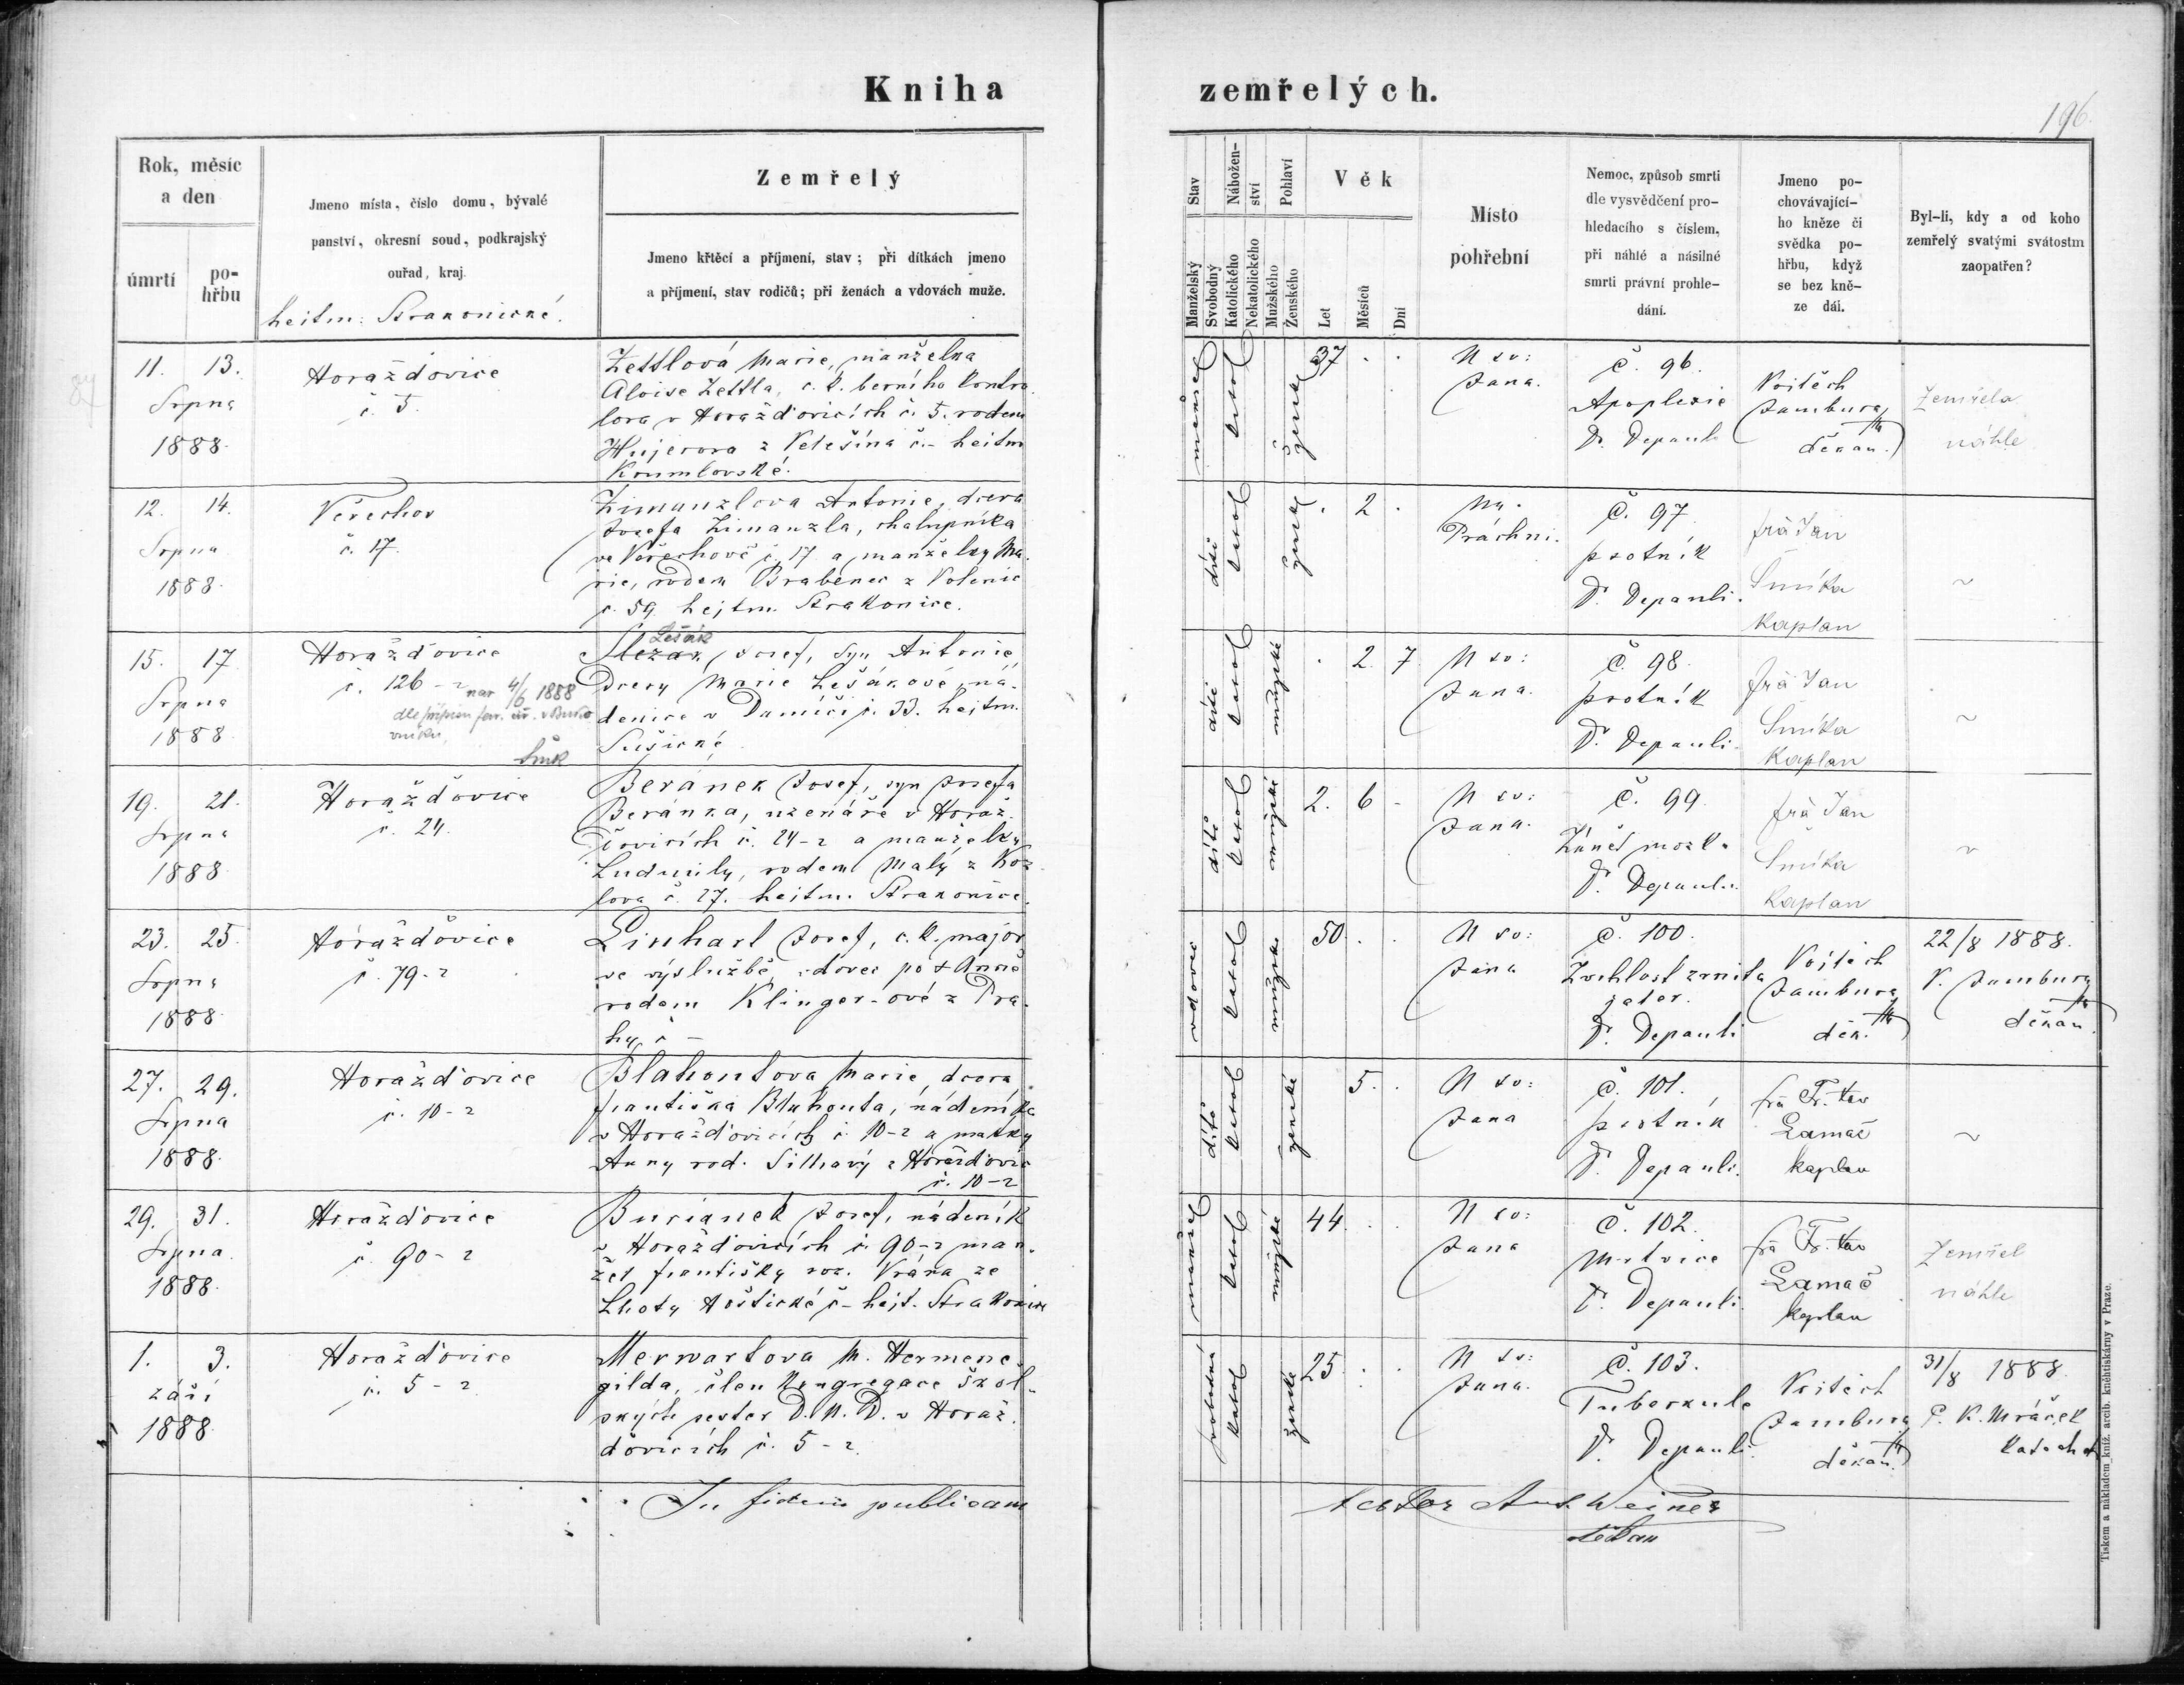 Kniha zemřelých.
196.
Rok, měsíc
a den
úmrtí
po-
hřbu
Jmeno místa, číslo domu, bývalé
panství, okresní soud, podkrajský
ouřad, kraj.
hejtm. Strakonické.
Zemřelý
Jmeno křtěcí a příjmení, stav; při dítkách jmeno
a příjmení, stav rodičů; při ženách a vdovách muže.
Stav
Manželský
Svobodný
Nábožen-
ství
Katolického
Nekatolického
Pohlaví
Mužského
Ženského
Věk
Let
Měsíců
Dní
Místo
pohřební
Nemoc, způsob smrti
dle vysvědčení pro-
hledacího s číslem,
při náhlé a násilné
smrti právní prohle-
dání.
Jmeno po-
chovávající-
ho kněze či
svědka po-
hřbu, když
se bez kně-
ze dál.
Byl-li, kdy a od koho
zemřelý svatými svátostm
zaopatřen?
11. 13.
Srpna
1888.
Horažďovice
č. 5.
Zettlová Marie, manželka
Aloise Zettla, c. k. berního kontro
lora v Horažďovicích č. 5. rodem
Hujerova z Velešína č. - hejtm
Krumlovské.
37 . .
U sv:
Jana.
č. 96.
Apoplexie
Dr. Depauli
Vojtěch
Jambura
děkan.
Zemřela
náhle
12. 14.
Srpna
1888.
Veřechov
č. 17.
Zimanzlova Antonie, dcera
Josefa Zimanzla, chalupníka
ve Veřechově č. 17 a manželky Ma
rie, rodem Brabenec z Volenic
č. 59. hejtm. Strakonice.
dítě
katol
ženské
. 2 .
Na
Práchni.
č. 97
psotník
Dr. Depauli.
frà Jan
Smíka
Kaplan
~
15. 17
Srpna
1888
Horažďovice
č. 126 - 2
nar 4/6 1888
Šuk
Lešák
Slezák, Josef, syn Antonie
Dcery Marie Lešákové, ná-
denice v Damíči č. 33. hejtm.
Sušické
dítě
katol
mužské
. 2. 7
U sv:
Jana.
č. 98.
psotník
Dr. Depauli.
frà Jan
Smíka
Kaplan
~
19. 21.
Srpna
1888
Horažďovice
č. 24.
Beránek Josef, syn Josefa
Beránka, uzenáře v Horaž-
ďovicích č. 24-2 a manželky
Ludmily, rodem Malý z Koz
lova č. 27. hejtm. Strakonice.
dítě
katol
mužské
2. 6 -
U sv:
Jana.
č. 99.
Zánět mozku
Dr. Depauli.
frà Jan
Smíka
Kaplan
~
23. 25.
Srpna
1888
Horažďovice
č. 79-2
Linhart Josef, c. k. major
ve výslužbě, vdovec po + Anně
rodem Klinger-ové z Pra-
hy, č -
vdovec
katol
mužské
50 . .
U sv:
Jana
č. 100.
Zrnitá
jater.
Dr. Depauli
Vojtěch
Jambura
děk.
22/8 1888.
V. Jambura
děkan.
27. 29.
Srpna
1888.
Horažďovice
č. 10-2
Blahoutova Marie, dcera
františka Blahouta, nádeníka
v Horažďovicích č. 10-2 a matky
Anny rod. Silhavý z Horažďovic
č. 10-2
dítě
katol
ženské
5. .
U sv:
Jana
č. 101.
psotník
Dr. Depauli.
frà Fr. Xav
Lamač
kaplan
~
29. 31.
Srpna
1888.
Horažďovice
č. 90-2
Burianek Josef, nádeník
v Horažďovicích č. 90-2 man-
žel františky roz. Vrána ze
Lhoty Hoštické č- hejt. Strakonice
manžel
katol
mužské
44. . .
U sv:
Jana
č. 102.
Mrtvice
Dr. Depauli.
frà Fr. Xav
Lamač
kaplan
Zemřel
náhle
1. 3.
září
1888.
Horažďovice
č. 5-2
Merwartova M. Hermene-
gilda, člen Kongregace škol-
ských sester D. N. D. v Horaž-
ďovicích č. 5-2.
svobodná
katol
ženské
25 . .
U sv:
Jana.
č. 103.
Tuberkule
Dr. Depauli.
Vojtěch
Jambura
děkan.
31/8 1888.
P. K. Mráček
Katecheta
In fidem publicam
testor Ant. Weiner
děkan
Tiskem a nákladem kníž. arcib. kněhtiskárny v Praze.